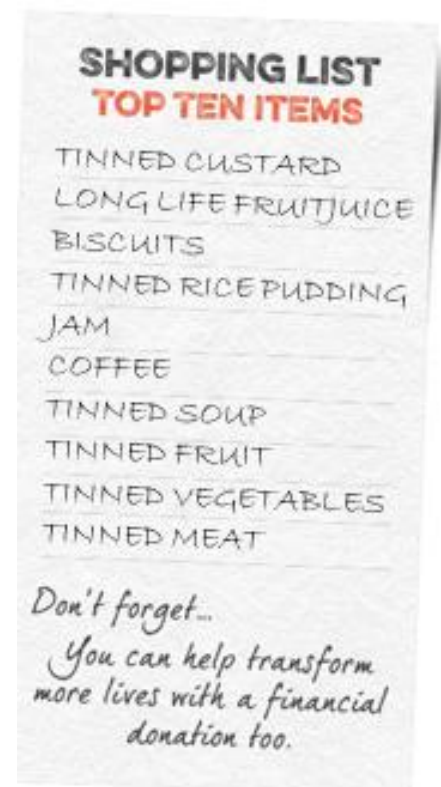 SHOPPING LIST
TOP TEN ITEMS
TINNED CUSTARD
LONG LIFE FRUIT JUICE
BISCUITS
TINNED RICE PUDDING
JAM
COFFEE
TINNED SOUP
TINNED FRUIT
TINNED VEGETABLES
TINNED MEAT
Don't forget...
You can help transform
more lives with a financial
donation too.